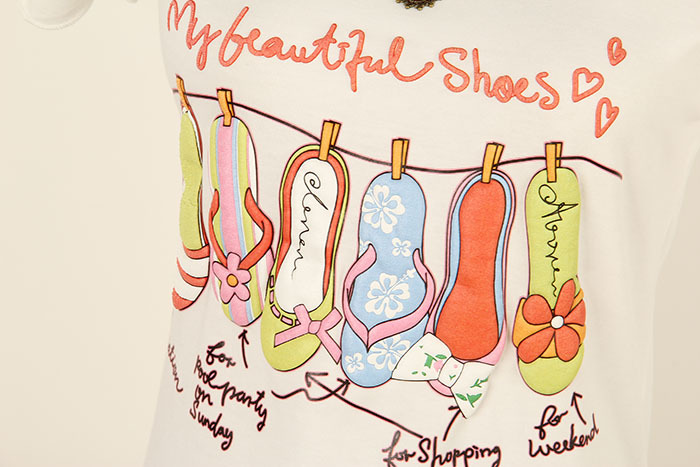 My beautiful Shoes
for
Pool party
on
Sunday
for Shopping
for
Weekend